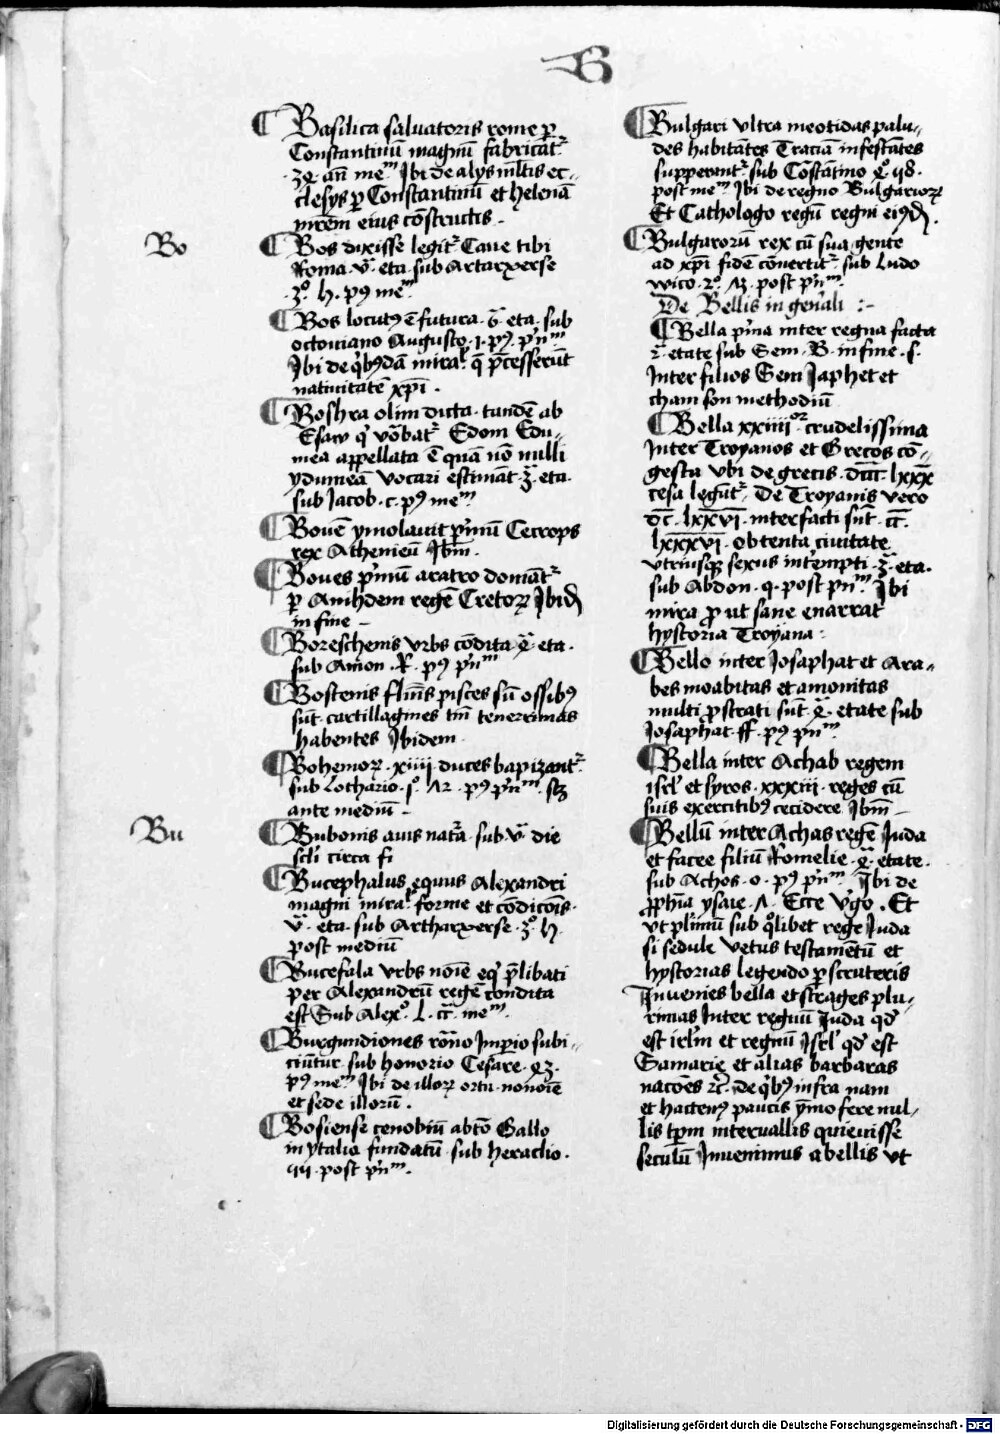 B
¶ Basilica saluatoris rome ꝑ
Constantinū magnū fabricat᷑
an̄ me᷑ᵐ Ibi de alys mltis ec-
clesys ꝑ Constantinū et helenā
mr̄em eius cōstructis .
Bo
¶ Bos dixisse legit᷑ Caue tibi
Roma . v̄ . eta . sub Artarxerse
. h . pꝰ meᵐ
¶ Bos locutꝰ ē futura . eta . sub
octouiano Augusto . pꝰ . pn̄ᵐ
Ibi de qbꝰdā mira . q̄ p̄cesserūt
natiuitatē xpī .
¶ Boshra olim dicta . tandē ab
Esaw q vōbat᷑ Edom Edu-
mea appellata ē quā nō nulli
ydumeā vocari estimāt . eta .
sub Jacob . c . pꝰ meᵐ
¶ Bouē ymolauit p̄mū Cecrops
rex Athenieū Ibm̄ .
¶ Boues p̄mū aratro domāt᷑
ꝑ regē Cretoꝝ Ibid̄
in fine -
¶ Boreschenis vrbs cōdita . eta .
sub Amon . pꝰ pn̄ᵐ
¶ Bostenis fluīs pisces sn̄ ossibꝰ
sūt cartillagines tm̄ tenerrimas
habentes Ibidem
¶ Bohemoꝝ . xiiii duces bapizant᷑
sub Lothario . pꝰ pn̄ᵐ
ante mediū -
Bu
¶ Bubonis auis nat᷑a . sub . v . die
scli circa fi
¶ Bucephalus equus Alexandri
magni mira forme et cōdicōis .
v̄ . eta . sub Artharxerse . h .
post mediū
¶ Bucefala vrbs noīe eq p̄libati
per Alexandrū regē condita
est Sub Alex° . l . me᷑ᵐ .
¶ Burgundiones romāo Imꝑio subi-
ciūtur . sub honorio Cesare .
pꝰ meᵐ Ibi de illoꝝ ortu . noīe
et sede illorū .
¶ Bosiense cenobiū abtō Gallo
in ytalia fundatū . sub heraclio .
post pn̄ᵐ .
¶ Bulgari vltra meotidas palu-
des habitātes Traciā infestātes
supperant᷑ . sub Cōstātino
post meᵐ Ibi de regno Bulgarioꝝ
Et Cathologo regū regni eiꝰd̄ .
¶ Bulgarorū rex cū sua gente
ad xpī fidē cōuertit᷑ . sub Ludo
wico . 2° . post pn̄ᵐ .
De Bellis in gen̄ali :-
¶ Bella p̄ma inter regna facta
2ᵃ etate sub Sem . B . in fine .
Inter filios Sem Japhet et
cham sm̄ methodiū
¶ Bella xxiiii°ʳ crudelissima
Inter Troyanos et Grecos cō-
gesta vbi de grecis . lxxx
cesa legūt᷑ . De Troyanis vero
dc̄ . lxxvi . interfacti sūt .
lxxxvi . obtenta ciuitate
vtriusqꝫ sexus int̄empti . eta .
sub Abdon . q . post pn̄ᵐ Ibi
mira ꝓ ut sane enarrat
hystoria Troyana :
¶ Bello inter Josaphat et Ara-
bes moabitas et amonitas
multi ꝓstrati sūt . etate sub
Josaphat . ff . pꝰ pn̄ᵐ
¶ Bella inter Achab regem
isrl̄ et syros . xxxiii . reges cū
suis exercitibꝰ cecidere Ibm̄ -
¶ Bellū inter Achas regē Juda
et facee filiū Romelie . etate .
sub Achos . o . pꝰ pn̄ᵐ . Ibi de
ꝓphīa ysaie . Ecce v̄go . Et
vt pl̄imū sub qlibet rege Juda
si sedule vetus testamētū et
hystorias legendo ꝑscruteris
Inuenies bella et strages plu-
rimas Inter regnū Juda qd̄
est irlm̄ et regnū Isrl̄ qd̄ est
Samarie et alias barbaras
nacōes rc̄ . de qbꝰ infra nam
et hactenꝰ paucis ymo fere nul-
lis tꝑm interuallis quieuisse
seculū Inuenimus a bellis vt
Digitalisierung gefördert durch die Deutsche Forschungsgemeinschaft - DFG